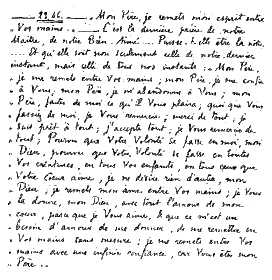 _____ 23.46. _____ « Mon Père, je remets mon esprit entre
« Vos mains » _____ C'est la dernière prière de notre
Maître, de notre Bien-Aimé.... Puisse-t-elle être la nôtre,
.... Et qu'elle soit non seulement celle de notre dernier
instant, mais celle de tous nos instants : « Mon Père,
« je me remets entre Vos mains ; mon Père, je me confie
« à Vous, mon Père, je m'abandonne à Vous ; mon
« Père, faites de moi ce qu'Il Vous plaira ; quoi que Vous
« fassiez de moi, je Vous remercie ; merci de tout ; je
« suis prêt à tout ; j'accepte tout ; je Vous remercie de
« tout ; Pourvu que Votre Volonté se fasse en moi, mon
« Dieu, pourvu que Votre Volonté se fasse en toutes
« Vos créatures, en tous Vos enfants, en tous ceux que
« Votre Cœur aime, je ne désire rien d'autre, mon
« Dieu ; je remets mon âme entre Vos mains ; je Vous
« la donne, mon Dieu, avec tout l'amour de mon
« cœur, parce que je Vous aime, & que ce m'est un
« besoin d'amour de me donner, de me remettre en
« Vos mains sans mesure ; je me remets entre Vos
« mains avec une infinie confiance, car Vous êtes mon
« Père...